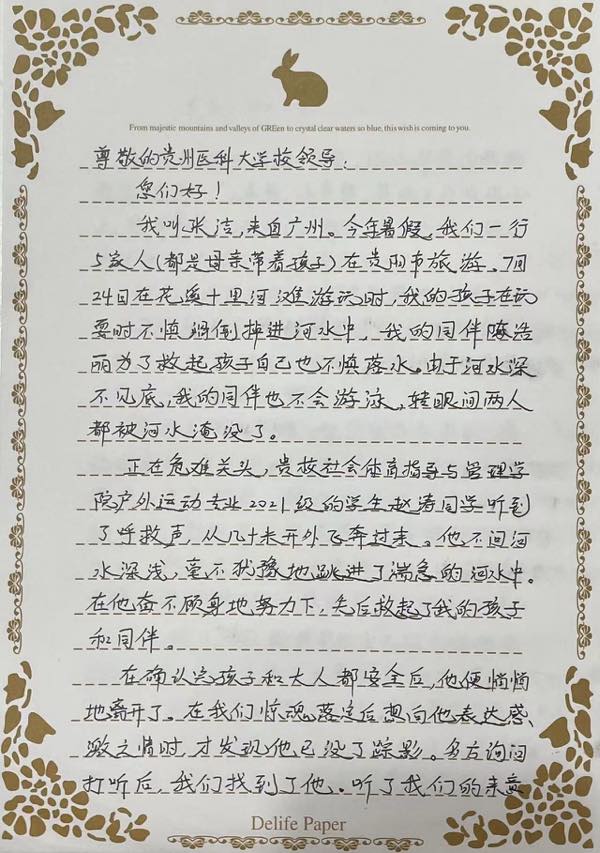 From majestic mountains and valleys of GREen to crystal clear waters so blue, this wish is coming to you.
尊敬的贵州医科大学校领导:
您们好!
我叫张洁,来自广州。今年暑假,我们一行
5家人(都是母亲带着孩子)在贵阳市旅游。7月
24日在花溪十里河滩游玩时,我的孩子在玩
耍时不慎踢倒掉进河水中,我的同伴陈浩
丽为了救起孩子自己也不慎落水。由于河水深
不见底,我的同伴也不会游泳,转眼间两人
都被河水淹没了。
正在危难关头,贵校社会体育指导与管理学
院户外运动专业2021级的学生赵涛同学听到
了呼救声,从几十米开外飞奔过来。他不问河
水深浅,毫不犹豫地跳进了湍急的河水中。
在他奋不顾身地努力下,先后救起了我的孩子
和同伴。
在确认完孩子和大人都安全后,他便悄悄
地离开了。在我们惊魂落定后想向他表达感
激之情时,才发现他已没了踪影。多方询问
打听后,我们找到了他。听了我们的来意
Delife Paper